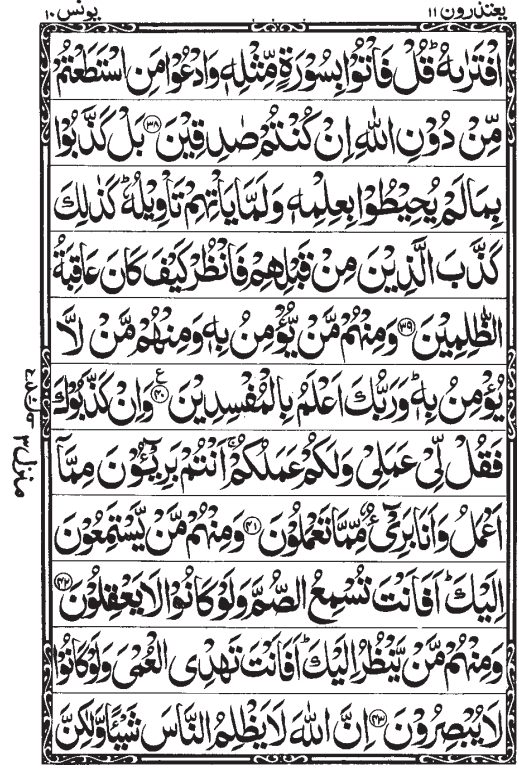 يعتذرون ١١
يونس ١٠
افْتَرٰىهُ ؕ قُلْ فَاْتُوْا بِسُوْرَةٍ مِّثْلِهٖ وَادْعُوْا مَنِ اسْتَطَعْتُمْ
مِّنْ دُوْنِ اللّٰهِ اِنْ كُنْتُمْ صٰدِقِيْنَ ﴿۳۸﴾ بَلْ كَذَّبُوْا
بِمَا لَمْ يُحِيْطُوْا بِعِلْمِهٖ وَلَمَّا يَاْتِهِمْ تَاْوِيْلُهٗ ؕ كَذٰلِكَ
كَذَّبَ الَّذِيْنَ مِنْ قَبْلِهِمْ فَانْظُرْ كَيْفَ كَانَ عَاقِبَةُ
الظّٰلِمِيْنَ ﴿۳۹﴾ وَمِنْهُمْ مَّنْ يُّؤْمِنُ بِهٖ وَمِنْهُمْ مَّنْ لَّا
يُؤْمِنُ بِهٖ ؕ وَرَبُّكَ اَعْلَمُ بِالْمُفْسِدِيْنَ ﴿۴۰﴾ ع وَاِنْ كَذَّبُوْكَ
فَقُلْ لِّيْ عَمَلِيْ وَلَكُمْ عَمَلُكُمْ ۚ اَنْتُمْ بَرِيْٓـُٔوْنَ مِمَّاۤ
اَعْمَلُ وَاَنَا بَرِيْٓءٌ مِّمَّا تَعْمَلُوْنَ ﴿۴۱﴾ وَمِنْهُمْ مَّنْ يَّسْتَمِعُوْنَ
اِلَيْكَ ؕ اَفَاَنْتَ تُسْمِعُ الصُّمَّ وَلَوْ كَانُوْا لَا يَعْقِلُوْنَ ﴿۴۲﴾
وَمِنْهُمْ مَّنْ يَّنْظُرُ اِلَيْكَ ؕ اَفَاَنْتَ تَهْدِى الْعُمْيَ وَلَوْ كَانُوْا
لَا يُبْصِرُوْنَ ﴿۴۳﴾ اِنَّ اللّٰهَ لَا يَظْلِمُ النَّاسَ شَيْـًٔا وَّلٰكِنَّ
منزل ۳